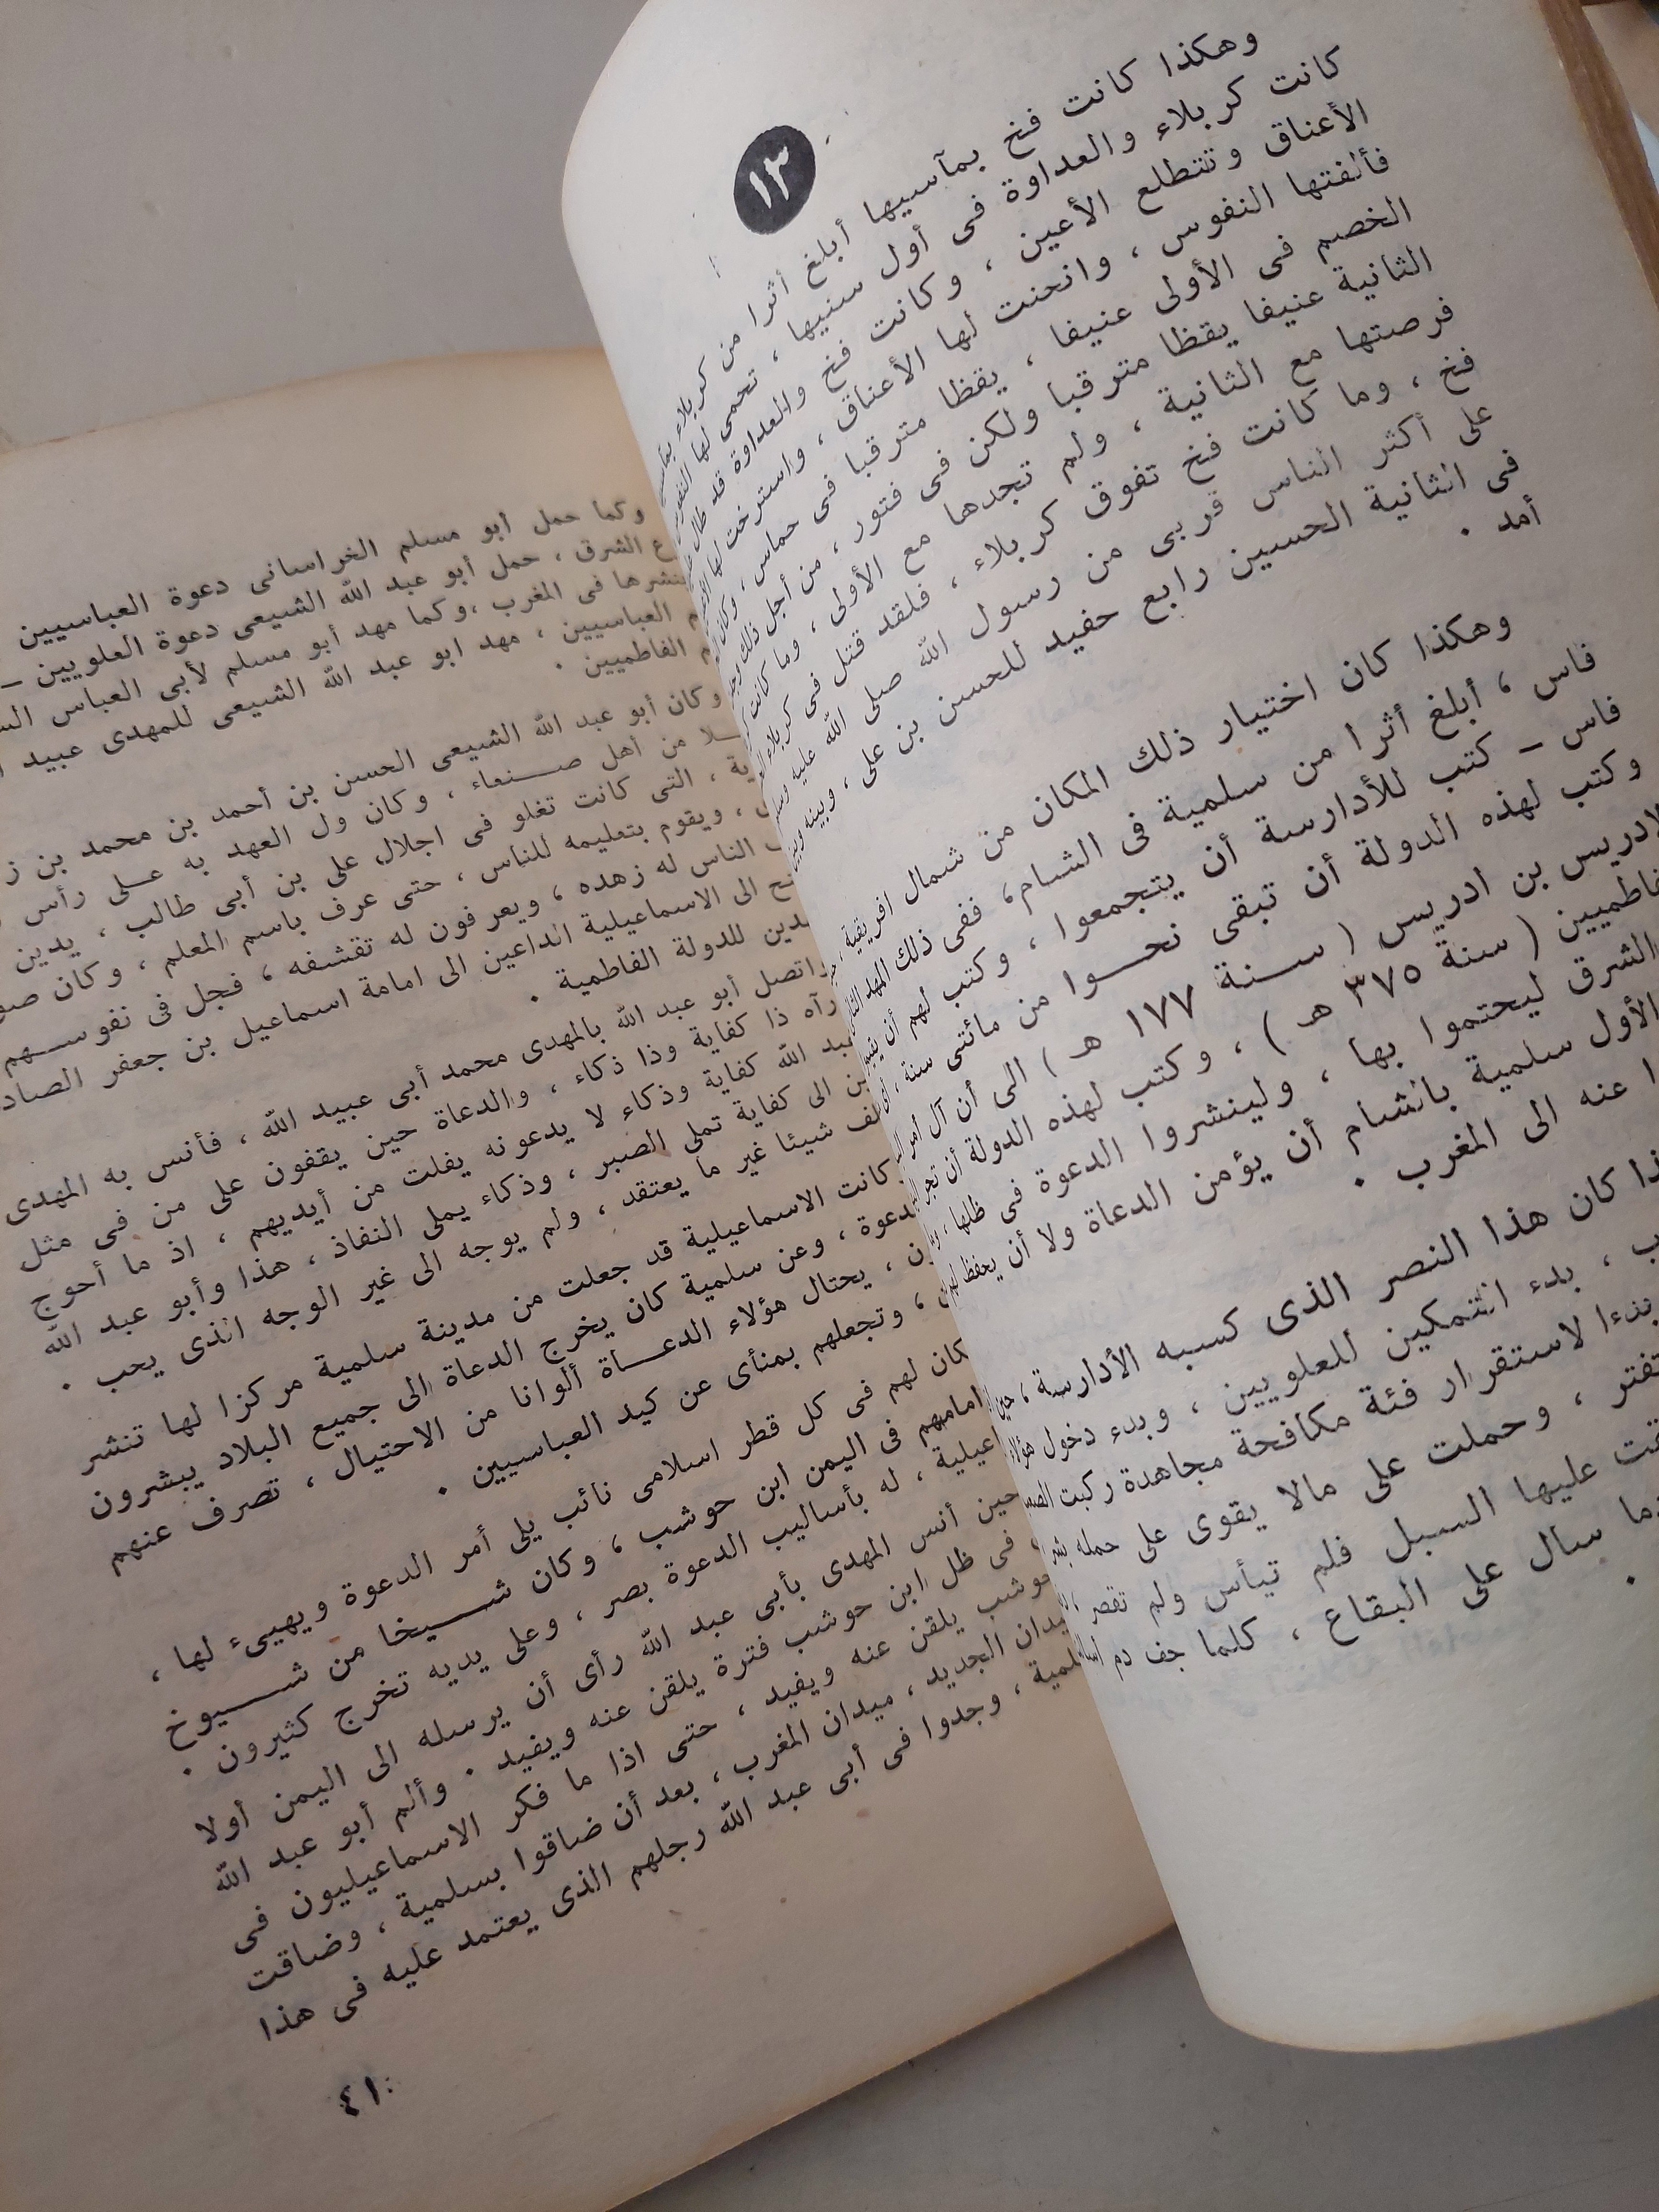 ١٣
وهكذا كانت فخ بمآسيها أبلغ أثرا من كربلاء
كانت كربلاء والعداوة فى أول سنيها ، تحمى لها النفوس
الأعناق وتتطلع الأعين ، وكانت فخ والعداوة قد طال
فألفتها النفوس ، وانحنت لها الأعناق ، واسترخت لها
الخصم فى الأولى عنيفا ، يقظا مترقبا فى حماس ، وكان
الثانية عنيفا يقظا مترقبا ولكن فى فتور ، من أجل ذلك
فرصتها مع الثانية ، ولم تجدها مع الأولى ، وما كانت
فخ ، وما كانت فخ تفوق كربلاء ، فلقد قتل فى كربلاء
على أكثر الناس قربى من رسول الله صلى الله عليه وسلم
فى الثانية الحسين رابع حفيد للحسن بن على ، وبينه وبين
أمد .
وهكذا كان اختيار ذلك المكان من شمال افريقية ،
فاس ، أبلغ أثرا من سلمية فى الشام ، ففى ذلك المهد
فاس – كتب للأدارسة أن يتجمعوا ، وكتب لهم أن
وكتب لهذه الدولة أن تبقى نحوا من مائتى سنة ،
لادريس بن ادريس ( سنة ١٧٧ هـ ) الى أن آل أمر
فاطميين ( سنة ٣٧٥ هـ ) ، وكتب لهذه الدولة أن
الشرق ليحتموا بها ، ولينشروا الدعوة فى ظلها ،
الأول سلمية بالشام أن يؤمن الدعاة ولا أن يحفظ
عنه الى المغرب .
كان هذا النصر الذى كسبه الأدارسة ، حين
، بدء التمكين للعلويين ، وبدء دخول
بدءا لاستقرار فئة مكافحة مجاهدة ركبت
تفتر ، وحملت على مالا يقوى على حمله بشر
عليها السبل فلم تيأس ولم تقصر ،
سال على البقاع ، كلما جف دم
وكما حمل أبو مسلم الخراسانى دعوة العباسيين
الشرق ، حمل أبو عبد الله الشيعى دعوة العلويين –
فى المغرب ، وكما مهد أبو مسلم لأبى العباس
العباسيين ، مهد ابو عبد الله الشيعى للمهدى عبيد
الفاطميين .
وكان أبو عبد الله الشيعى الحسن بن أحمد بن محمد بن
من أهل صنعاء ، وكان ول العهد به على رأس
، التى كانت تغلو فى اجلال على بن أبى طالب ، يدين
، ويقوم بتعليمه للناس ، حتى عرف باسم المعلم ، وكان
الناس له زهده ، ويعرفون له تقشفه ، فجل فى نفوسهم
الى الاسماعيلية الداعين الى امامة اسماعيل بن جعفر
للدولة الفاطمية .
اتصل أبو عبد الله بالمهدى محمد أبى عبيد الله ، فأنس به المهدى
رآه ذا كفاية وذا ذكاء ، والدعاة حين يقفون على من فى مثل
الله كفاية وذكاء لا يدعونه يفلت من أيديهم ، اذ ما أحوج
الى كفاية تملى الصبر ، وذكاء يملى النفاذ ، هذا وأبو عبد الله
شيئا غير ما يعتقد ، ولم يوجه الى غير الوجه الذى يحب .
كانت الاسماعيلية قد جعلت من مدينة سلمية مركزا لها تنشر
الدعوة ، وعن سلمية كان يخرج الدعاة الى جميع البلاد يبشرون
، يحتال هؤلاء الدعاة ألوانا من الاحتيال ، تصرف عنهم
، وتجعلهم بمنأى عن كيد العباسيين .
كان لهم فى كل قطر اسلامى نائب يلى أمر الدعوة ويهيىء لها ،
امامهم فى اليمن ابن حوشب ، وكان شيخا من شيوخ
، له بأساليب الدعوة بصر ، وعلى يديه تخرج كثيرون .
حين أنس المهدى بأبى عبد الله رأى أن يرسله الى اليمن أولا
فى ظل ابن حوشب فترة يلقن عنه ويفيد . وألم أبو عبد الله
حوشب يلقن عنه ويفيد ، حتى اذا ما فكر الاسماعيليون فى
الجديد ، ميدان المغرب ، بعد أن ضاقوا بسلمية ، وضاقت
، وجدوا فى أبى عبد الله رجلهم الذى يعتمد عليه فى هذا
٤١